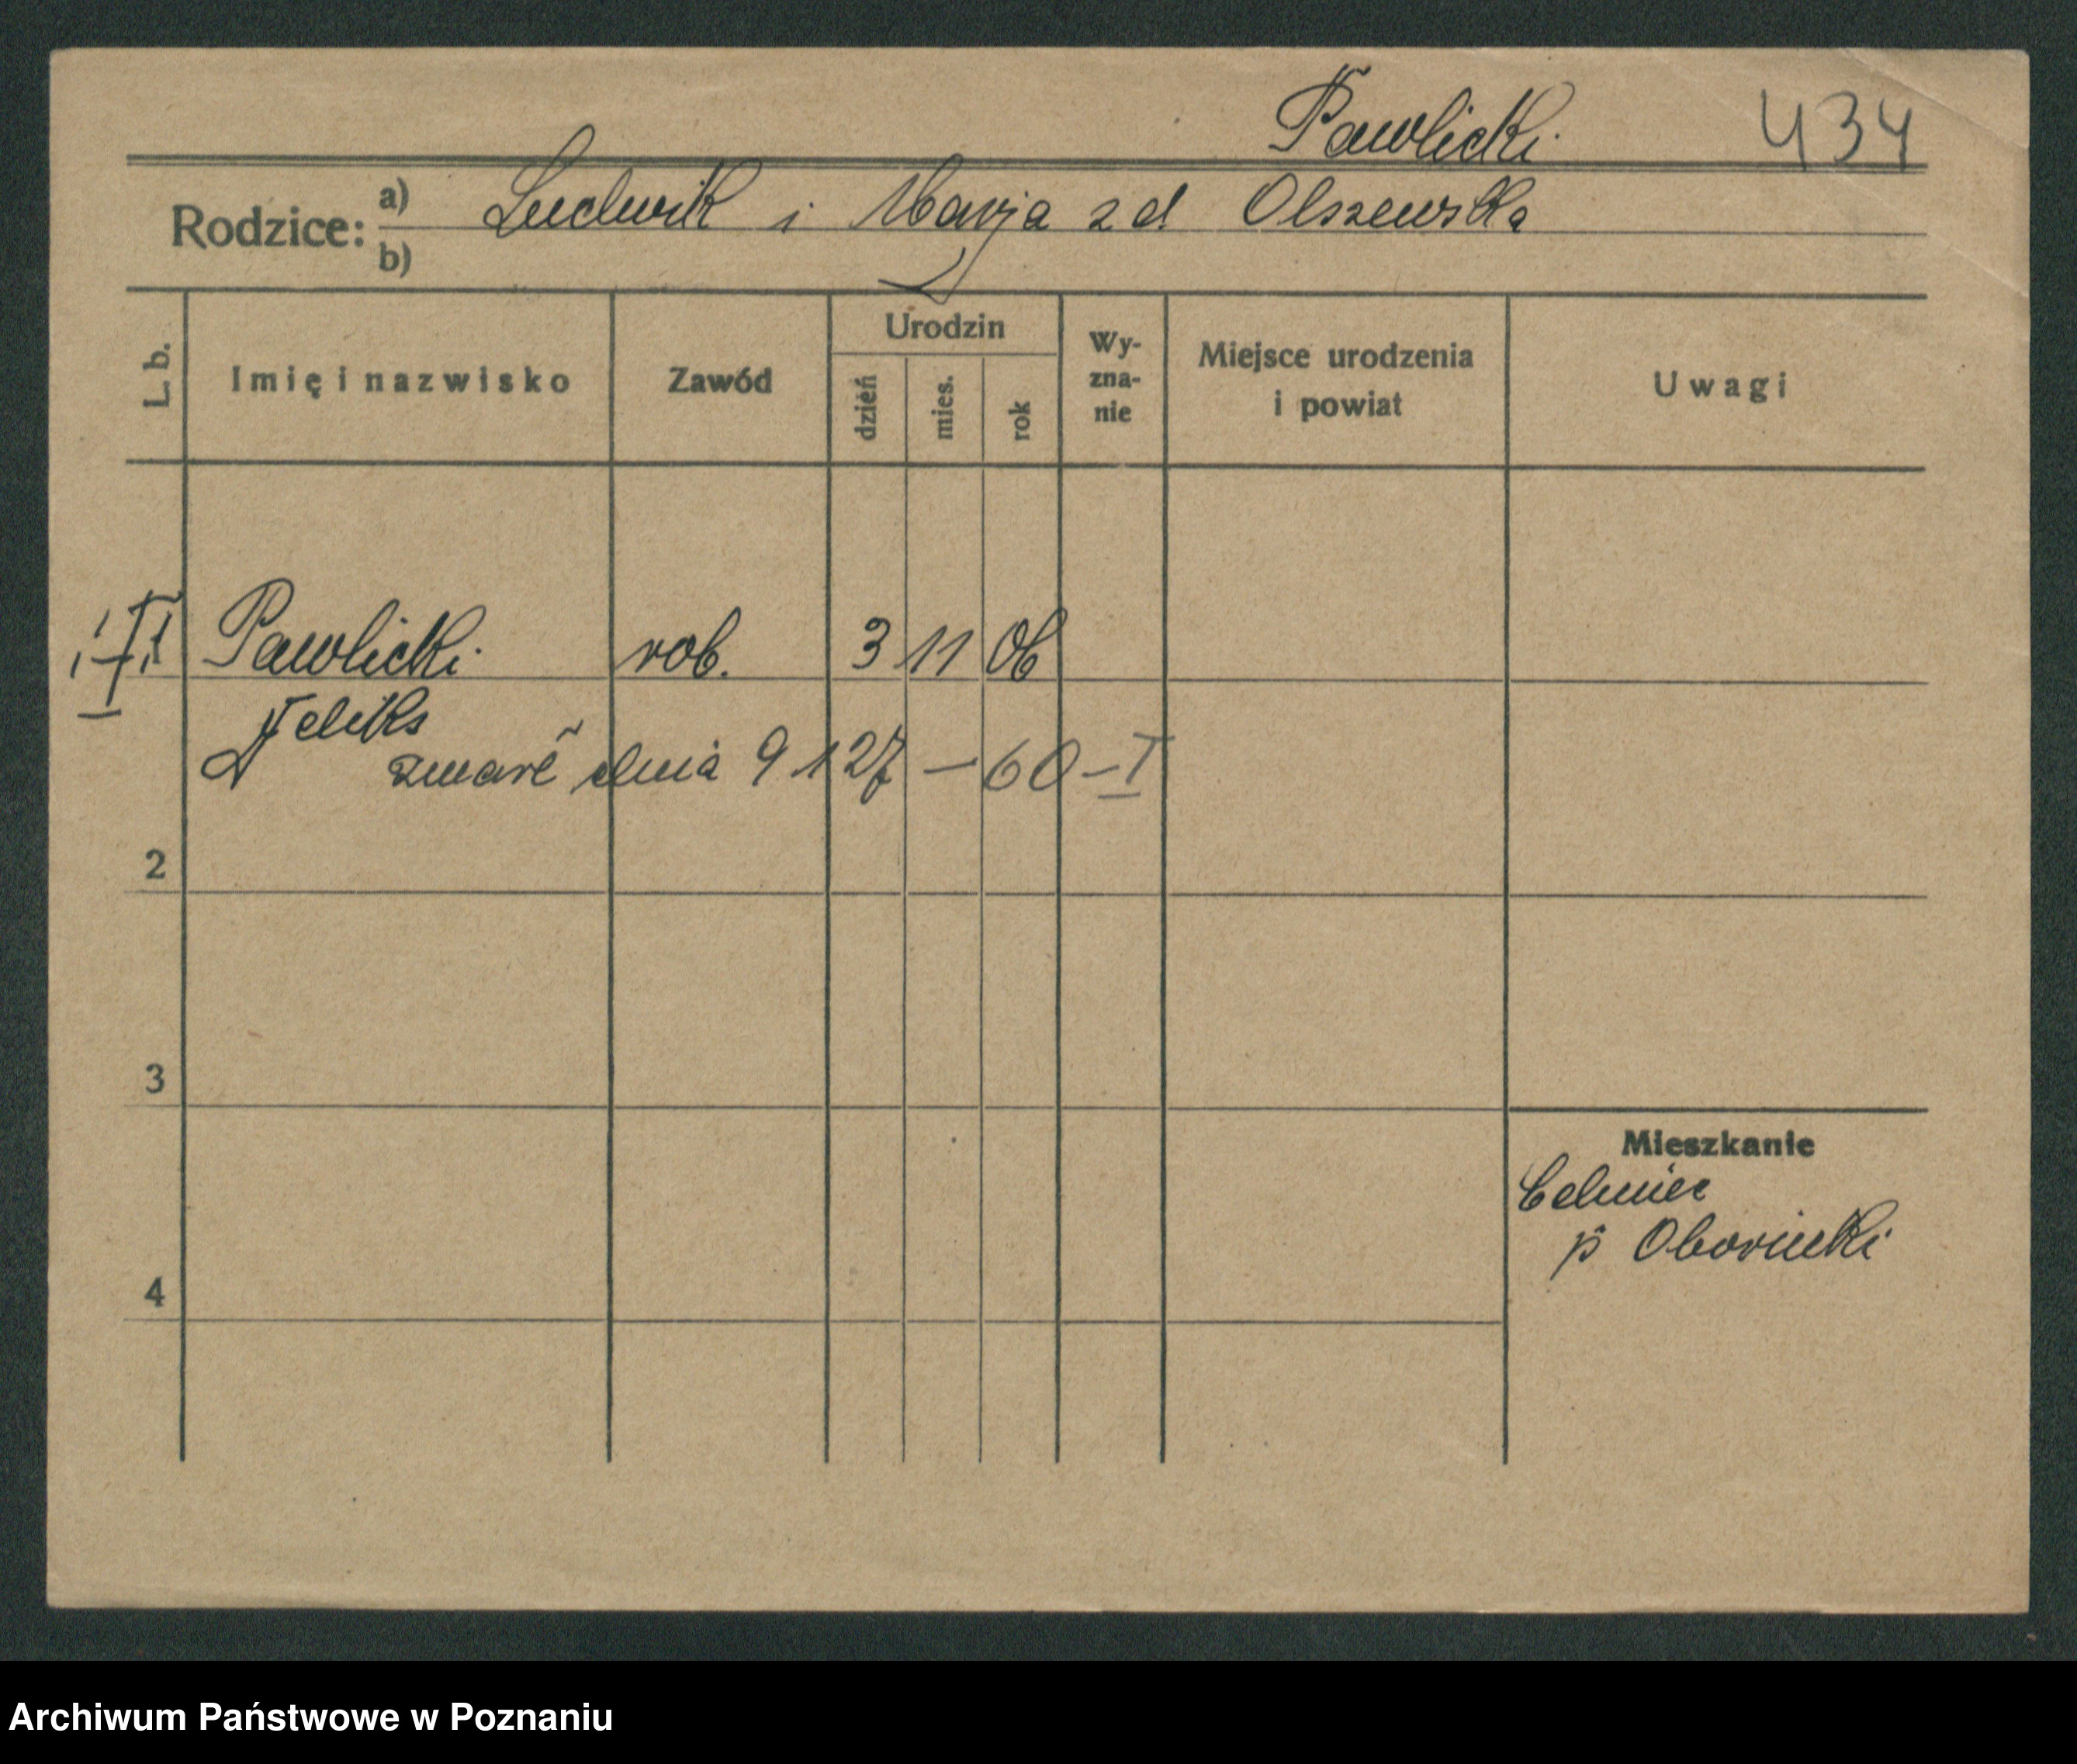 Pawlicki 434
Rodzice: a) Ludwik i Marja z d Olszewska
b)
L. b. Imię i nazwisko Zawód Urodzin dzień mies. rok Wy-zna-nie Miejsce urodzenia i powiat Uwagi
Pawlicki rob. 3 11 06
Feliks
zmarł dnia 9 1 27 – 60 – I
2
3
Mieszkanie
p Obornicki
4
Archiwum Państwowe w Poznaniu